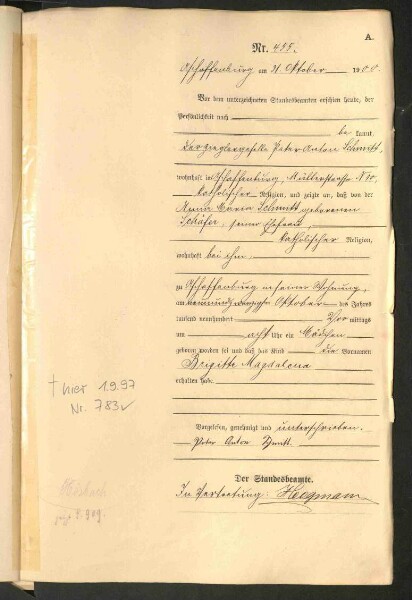 A.
Nr. 455.
Aschaffenburg am 31. Oktober 1900.
Vor dem unterzeichneten Standesbeamten erschien heute, der
Persönlichkeit nach
be kannt,
der Zieglergeselle Peter Anton Schmitt,
wohnhaft in Aschaffenburg, Müllerstrasse
katholischer Religion, und zeigte an, daß von der
Anna Maria Schmitt, geborenen
Schäfer, seiner Ehefrau,
katholischer Religion,
wohnhaft bei ihm
zu Aschaffenburg in seiner Wohnung,
am neunundzwanzigsten Oktober des Jahres
tausend neunhundert Vor mittags
um acht Uhr ein Mädchen
geboren worden sei und daß das Kind die Vornamen
Brigitte Magdalena
erhalten habe.
Vorgelesen, genehmigt und unterschrieben.
Peter Anton Schmitt.
Der Standesbeamte.
In Vertretung:
† hier 1997
Nr. 783